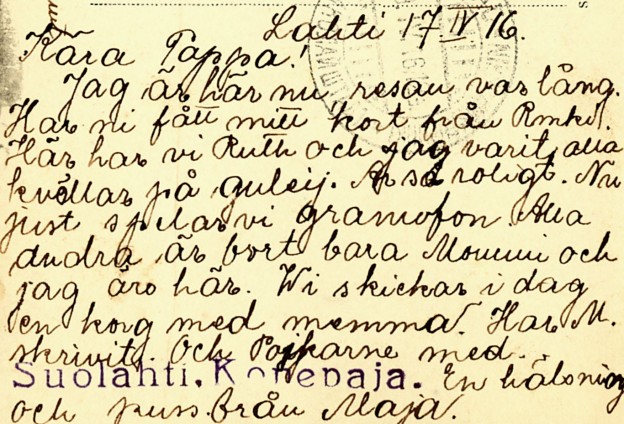 Lahti 17 IV 16.
Kära Pappa!
Jag är här nu resan var lång.
Har ni fått mitt kort från Rmki.
Här har vi Ruth och jag varit alla
kvällar på guleij. Är så roligt. Nu
just spelar vi gramofon. Alla
andra är bort bara Mommi och
jag äro här. Wi skickar i dag
en korg med memma. Har M.
skrivit. Och Pojkarne med.
Suolahti. Konepaja. En hälsning
och puss från Maja.